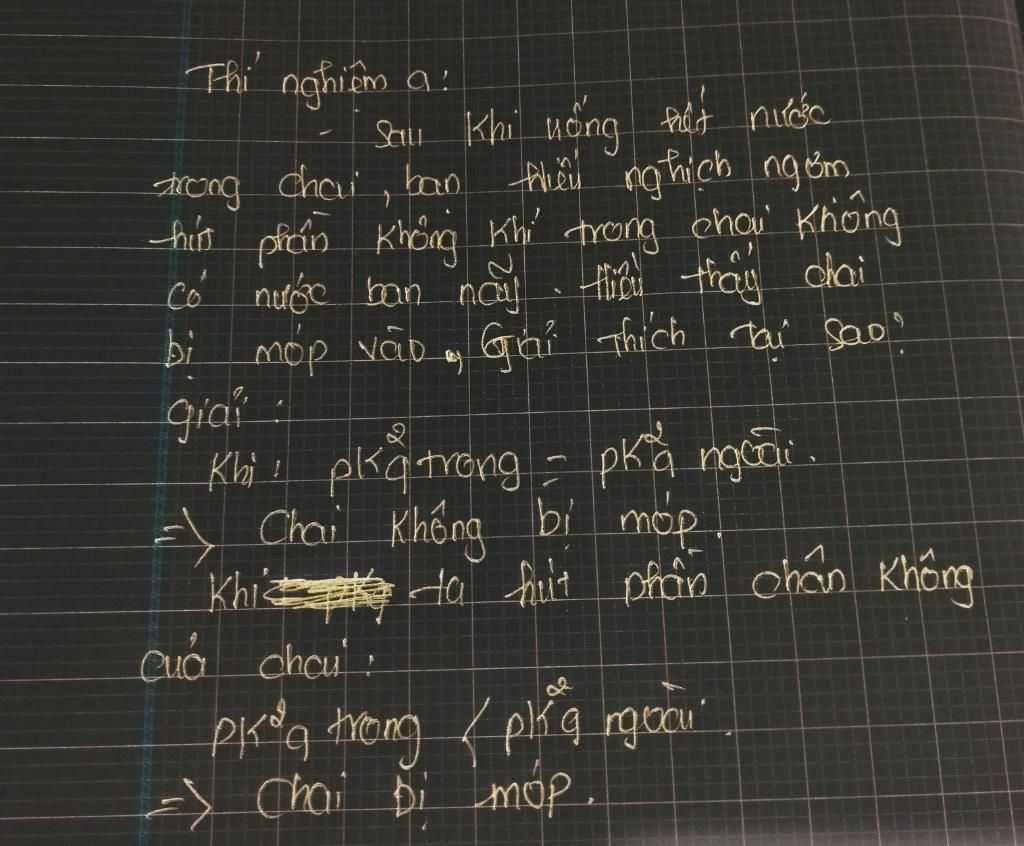 Thí nghiệm a:
- Sau khi uống hết nước
trong chai, bạn Hiếu nghịch ngợm
hút phần không khí trong chai không
có nước ban nãy. Hiếu thấy chai
bị móp vào, Giải thích tại sao?
giải:
Khi: pk²q trong = pk²q ngoài.
=> Chai không bị móp.
Khi ta hút phần chân không
của chai:
pk²q trong < pk²q ngoài.
=> Chai bị móp.